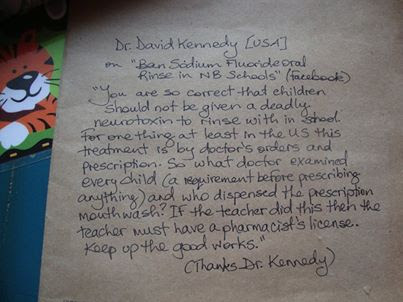 Dr. David Kennedy [USA]
on "Ban Sodium Fluoride oral
Rinse in NB Schools" (facebook)
"You are so correct that children
should not be given a deadly
neurotoxin to rinse with in school.
For one thing at least in the US this
treatment is by doctor's orders and
prescription. So what doctor examined
every child (a requirement before prescribing
anything) and who dispensed the prescription
mouthwash? If the teacher did this then the
teacher must have a pharmacist's license.
Keep up the good works."
(Thanks Dr. Kennedy)